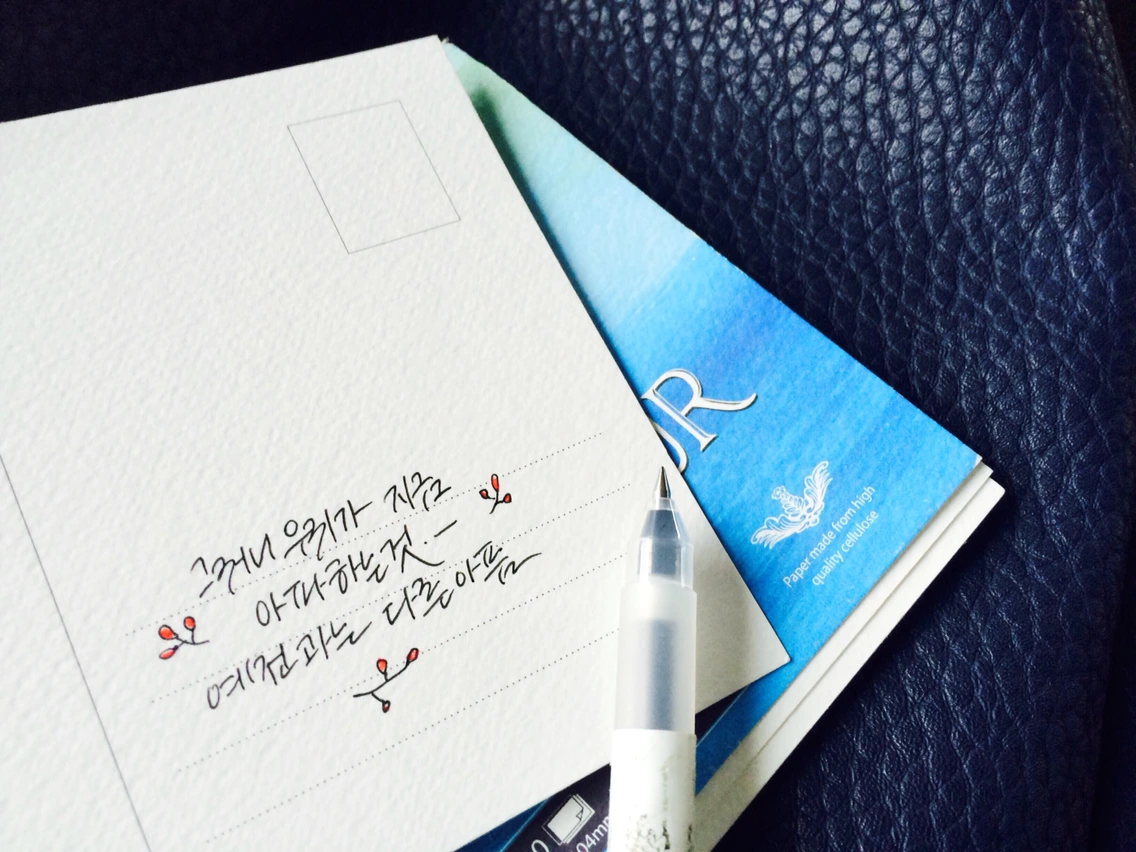 그러니 우리가 지금
아파하는것.—
예전과는 다른아픔
UR
Paper made from high
quality cellulose